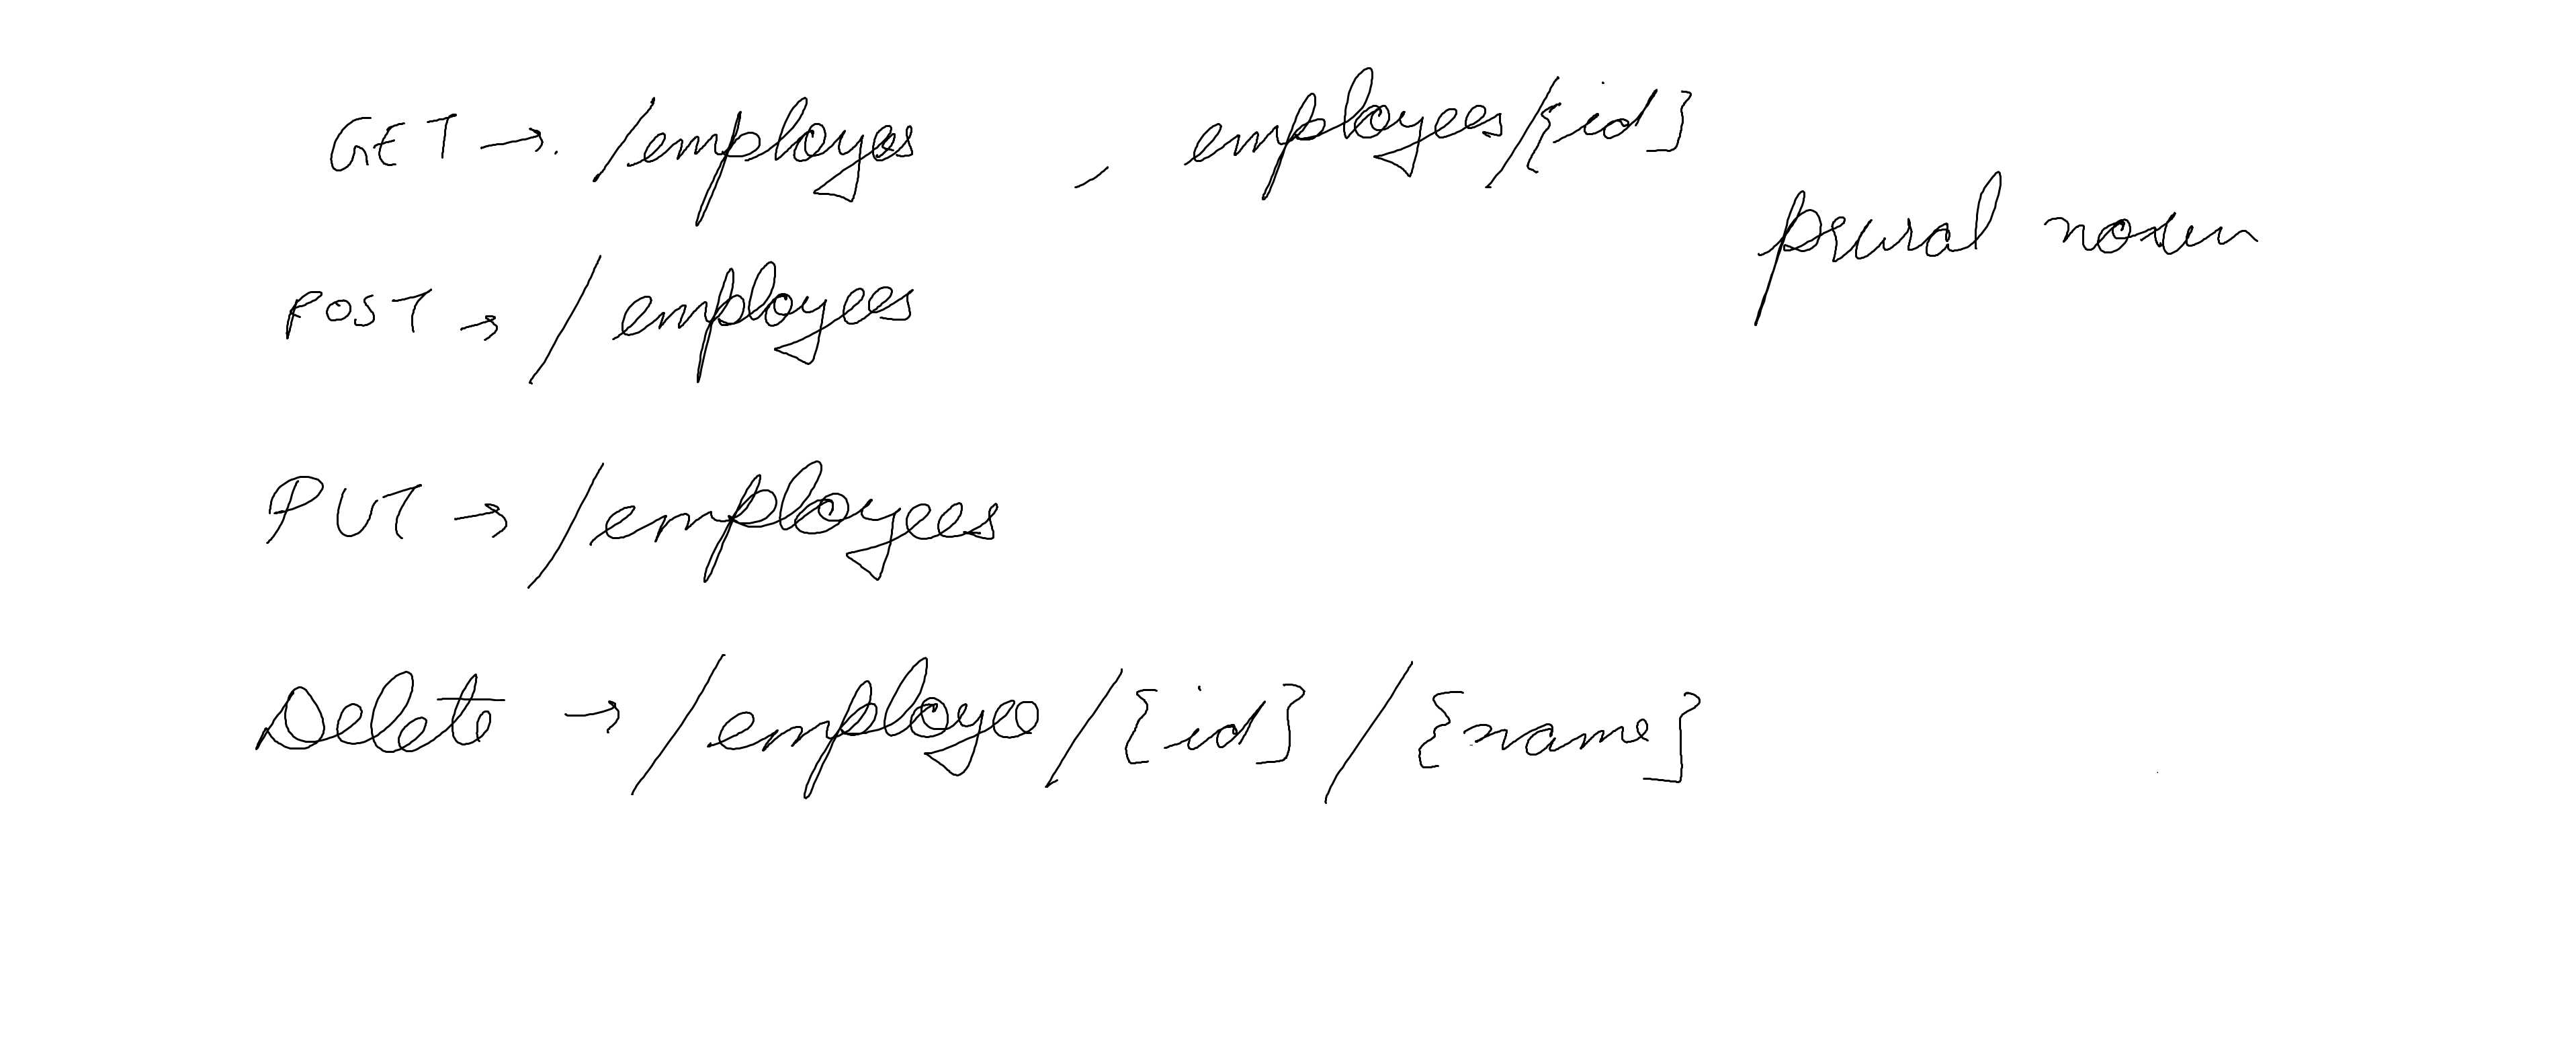 GET →. /employes , employees/{id}
prural noun
POST → / employees
PUT → /employees
Delete → /employee/{id} / {name}